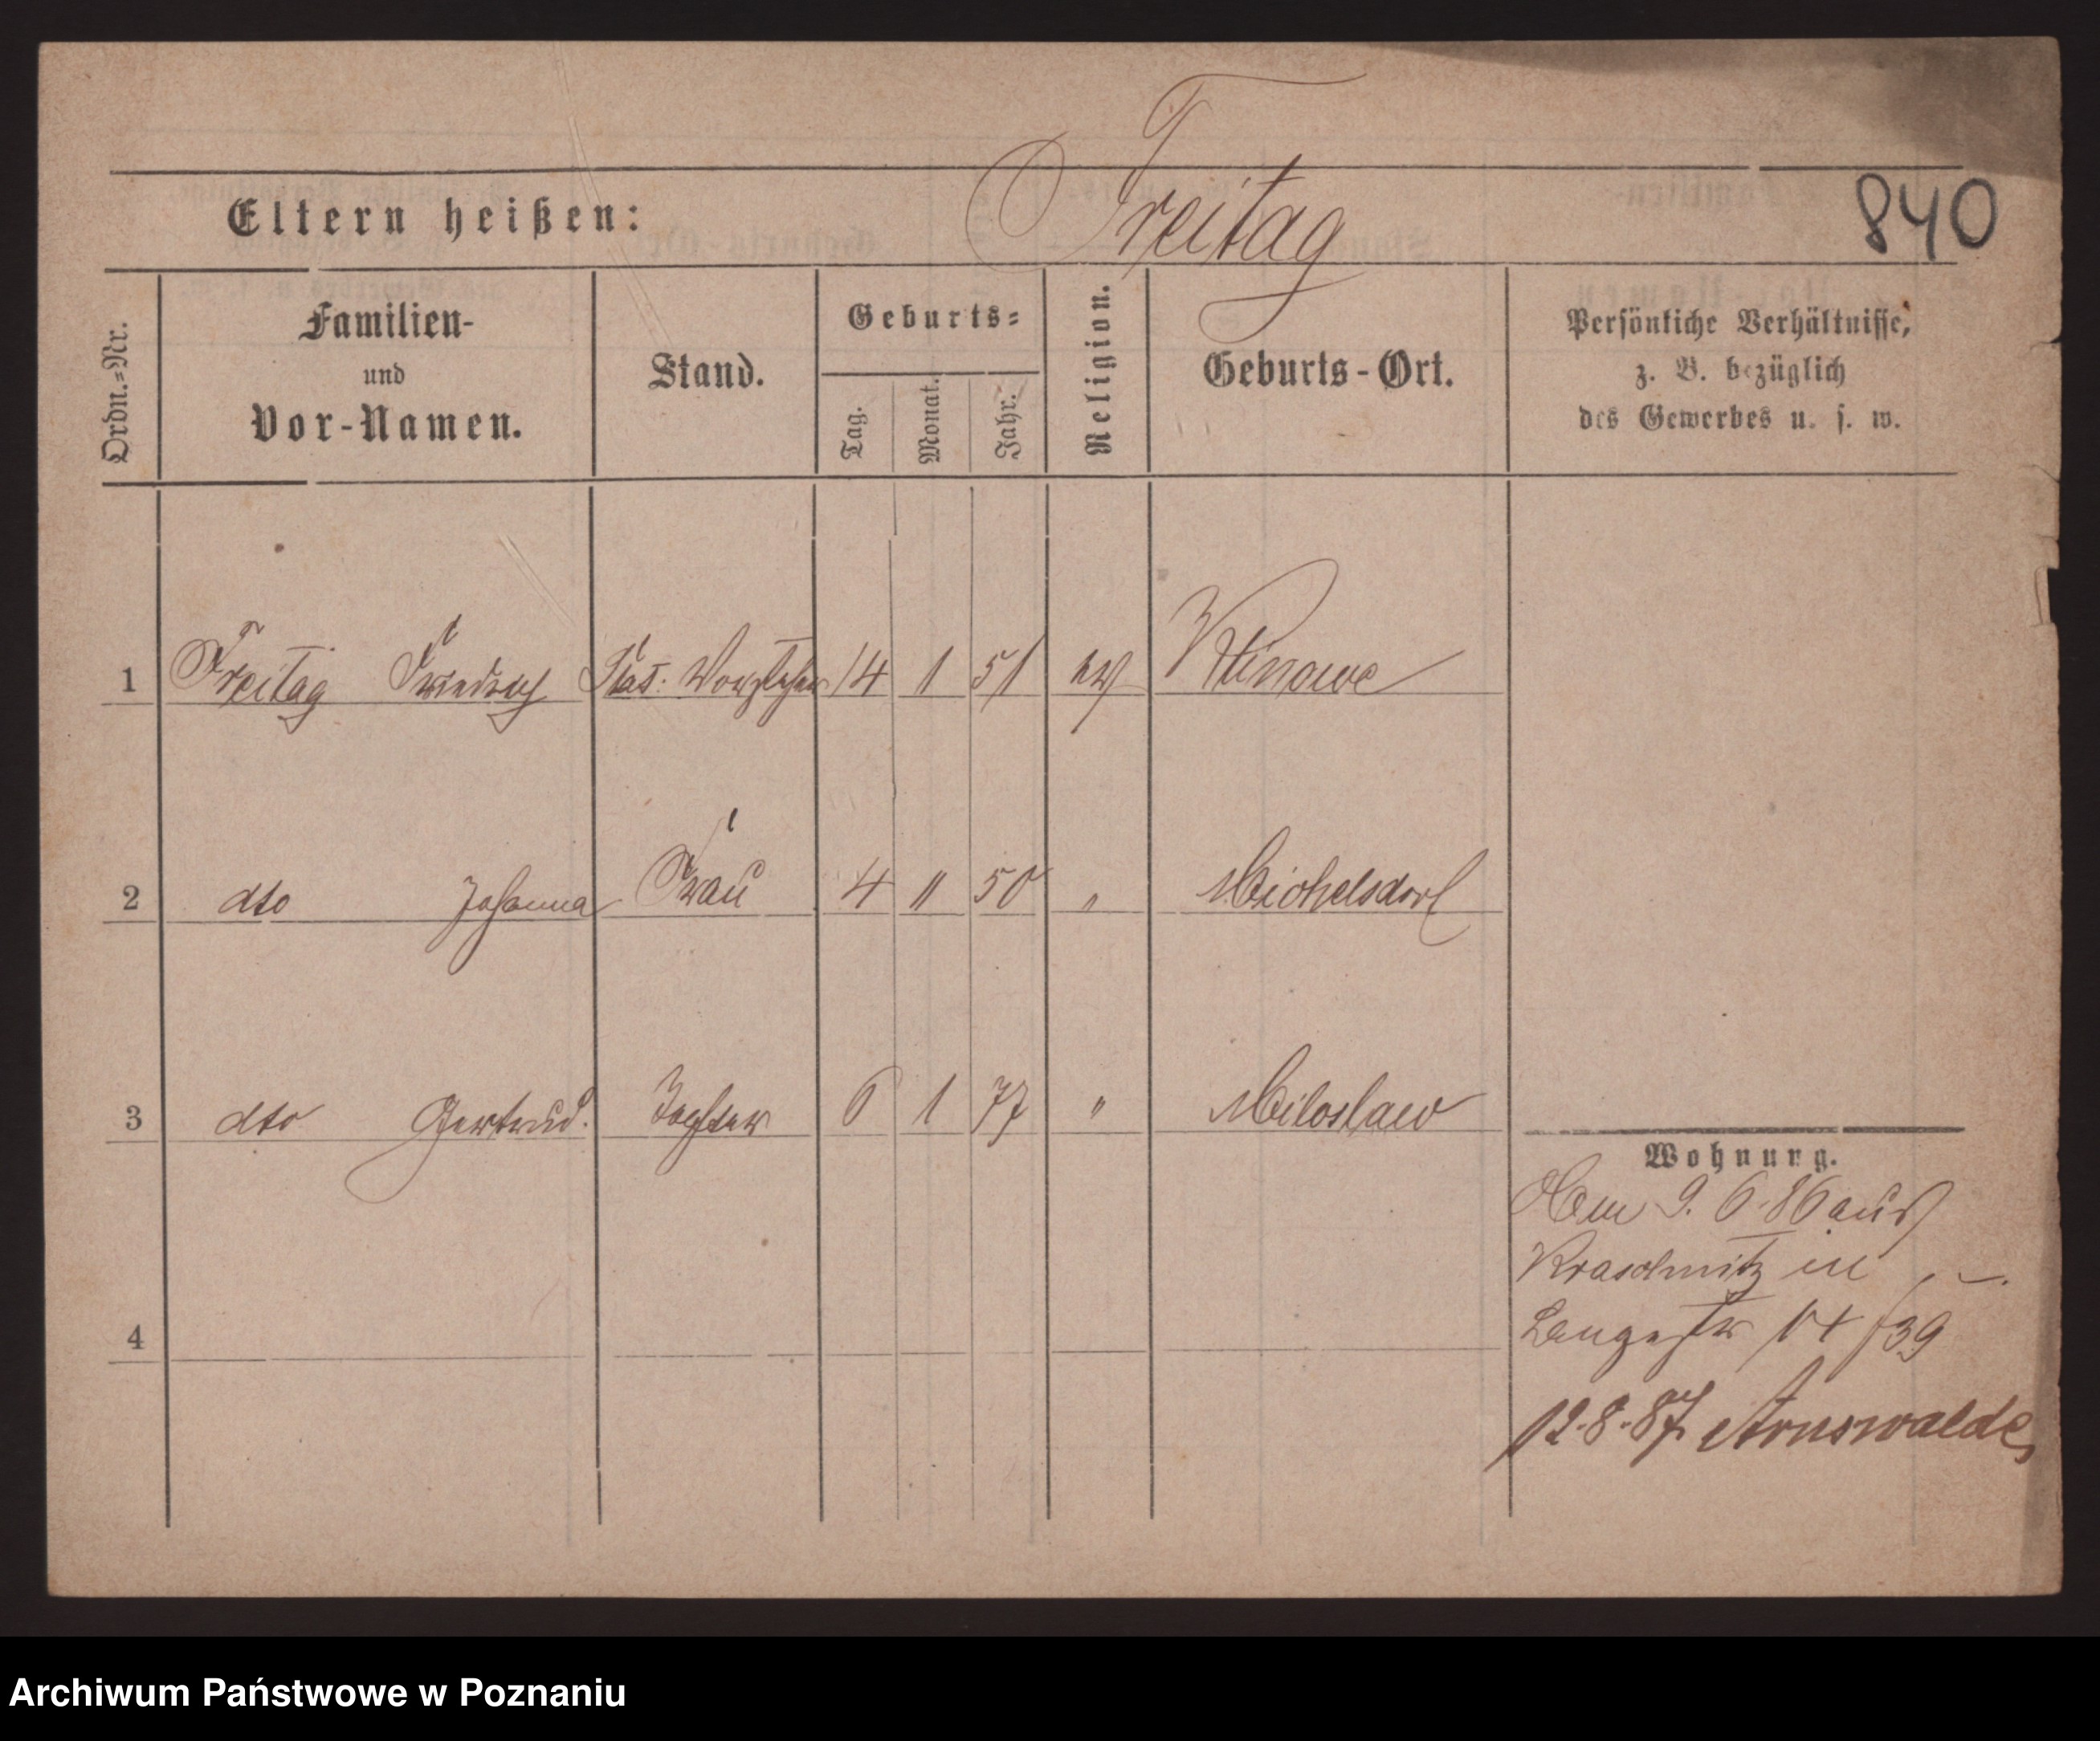 Freitag
840
Eltern heißen:
Ordn.=Nr.
Familien-
und
Vor-Namen.
Stand.
Geburts=
Tag.
Monat.
Jahr.
Religion.
Geburts-Ort.
Persönliche Verhältnisse,
z. B. bezüglich
des Gewerbes u. s. w.
1 Freitag Friedrich Stat: Vorsteher 14 1 51 ev
2 dto Johanna Frau 4 " 50 " Michelsdorf
3 dto Gertrud. Tochter 6 1 77 " Miloslaw
4
Wohnung.
9. 6. 86 aus
Kraschnitz in
Langestr 14 /39
12-8-87 Arnswalde
Archiwum Państwowe w Poznaniu